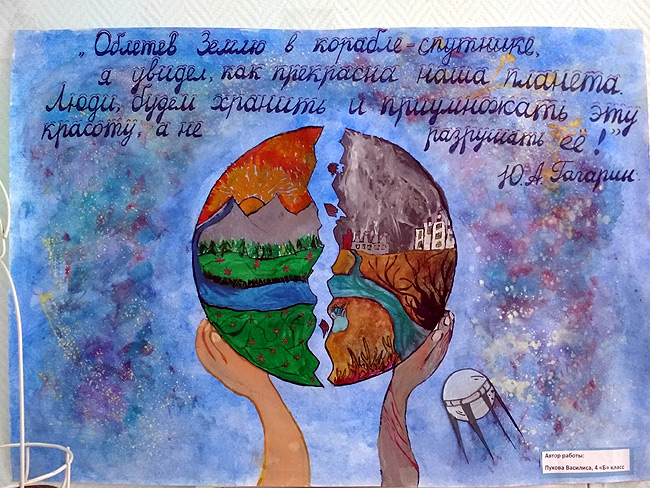 „Облетев Землю в корабле-спутнике,
я увидел, как прекрасна наша планета.
Люди, будем хранить и приумножать эту
красоту, а не разрушать её!"
Ю.А. Гагарин
Автор работы:
Пухова Василиса, 4 «Б» класс